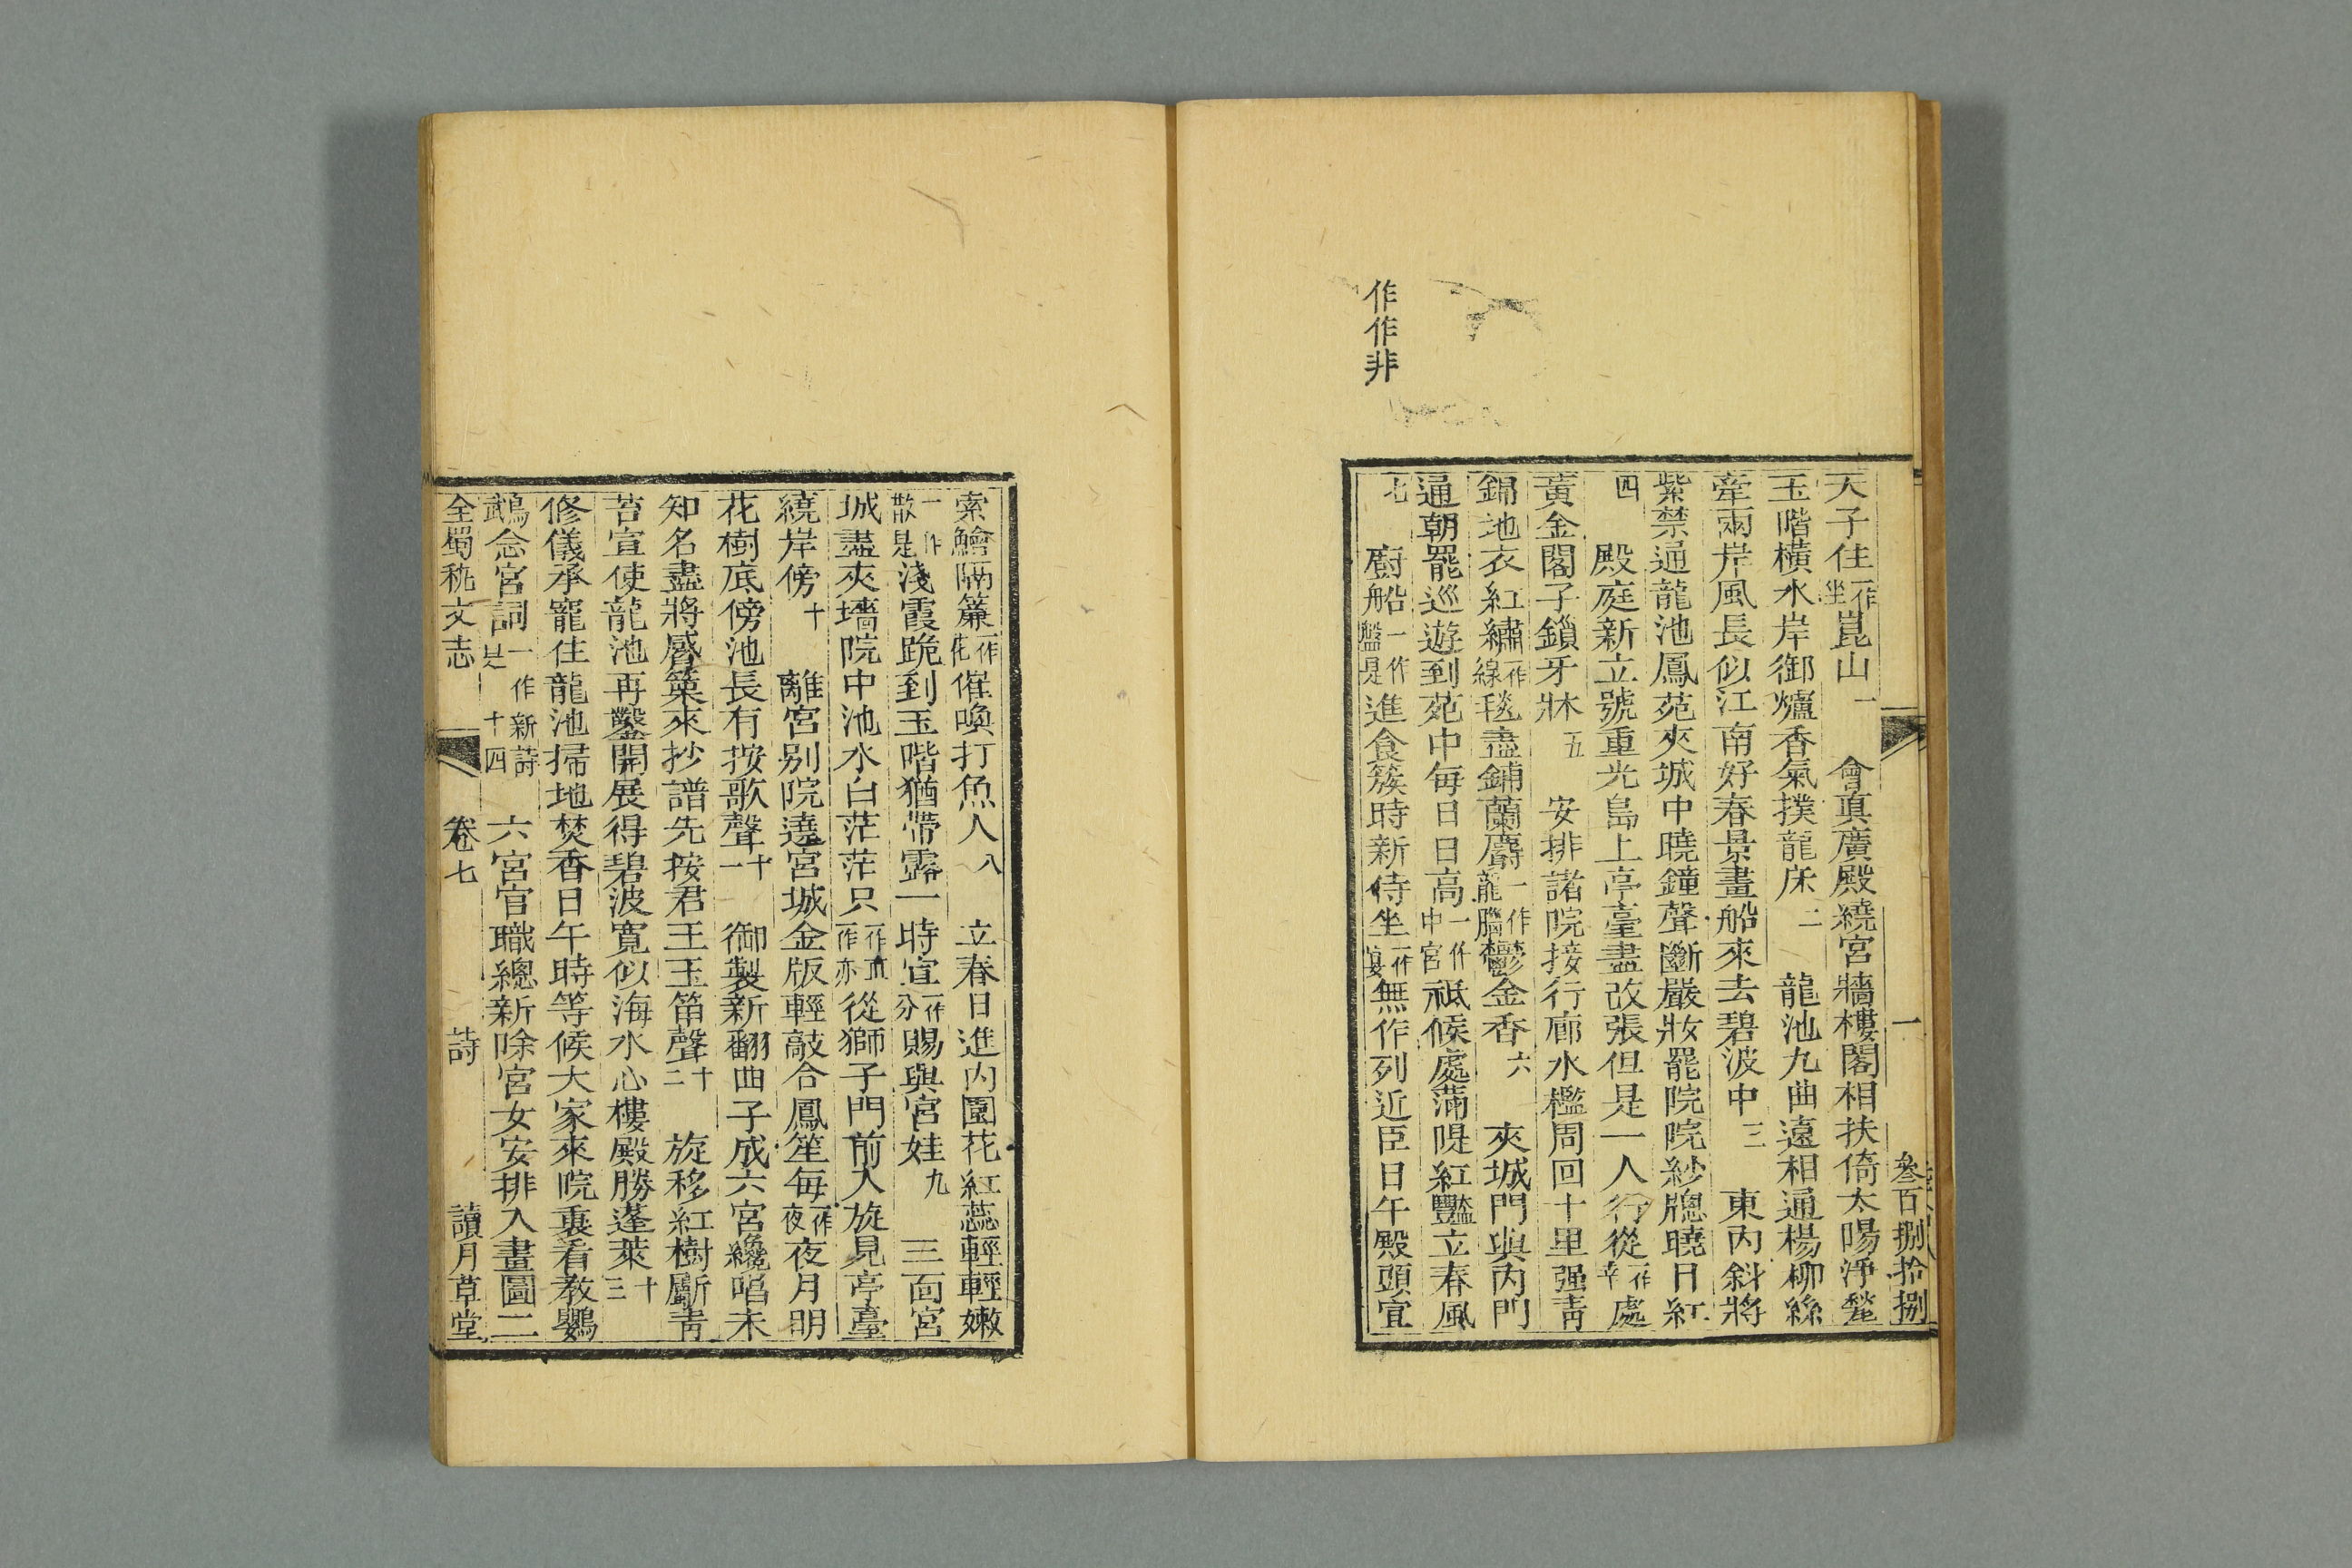 一 叁百捌拾捌
天子住一作坐崑山一 會真廣殿繞宮牆樓閣相扶倚太陽淨甃
玉階橫水岸御爐香氣撲龍床二 龍池九曲遠相通楊柳絲
牽兩岸風長似江南好春景畫船來去碧波中三 東內斜將
紫禁通龍池鳳苑夾城中曉鐘聲斷嚴妝罷院院紗牕曉日紅
四 殿庭新立號重光島上亭臺盡改張但是一人行從一作幸處
黃金閣子鎖牙牀五 安排諸院接行廊水檻周回十里强靑
錦地衣紅繡一作線毯盡鋪蘭麝一作龍腦鬱金香六 夾城門與內門
通朝罷巡遊到苑中每日日高一作中官祗候處滿隄紅豔立春風
七 廚船一作盤是進食簇時新侍坐一作宴無作列近臣日午殿頭宣
作作非
索鱠隔簾一作花催喚打魚人八 立春日進內園花紅蕊輕輕嫩
一作散是淺霞跪到玉階猶帶露一時宣一作分賜與宮娃九 三面宮
城盡夾墻院中池水白茫茫只一作直一作亦從獅子門前入旋見亭臺
繞岸傍十 離宮別院遶宮城金版輕敲合鳳笙每一作夜夜月明
花樹底傍池長有按歌聲十一 御製新翻曲子成六宮纔唱未
知名盡將觱篥來抄譜先按君王玉笛聲十二 旋移紅樹斸靑
苔宣使龍池再鑿開展得碧波寬似海水心樓殿勝蓬萊十三
修儀承寵住龍池掃地焚香日午時等候大家來院裏看敎鸚
鵡念宮詞一作新詩是十四 六宮官職總新除宮女安排入畫圖二
全蜀秇文志 卷七 詩 讀月草堂